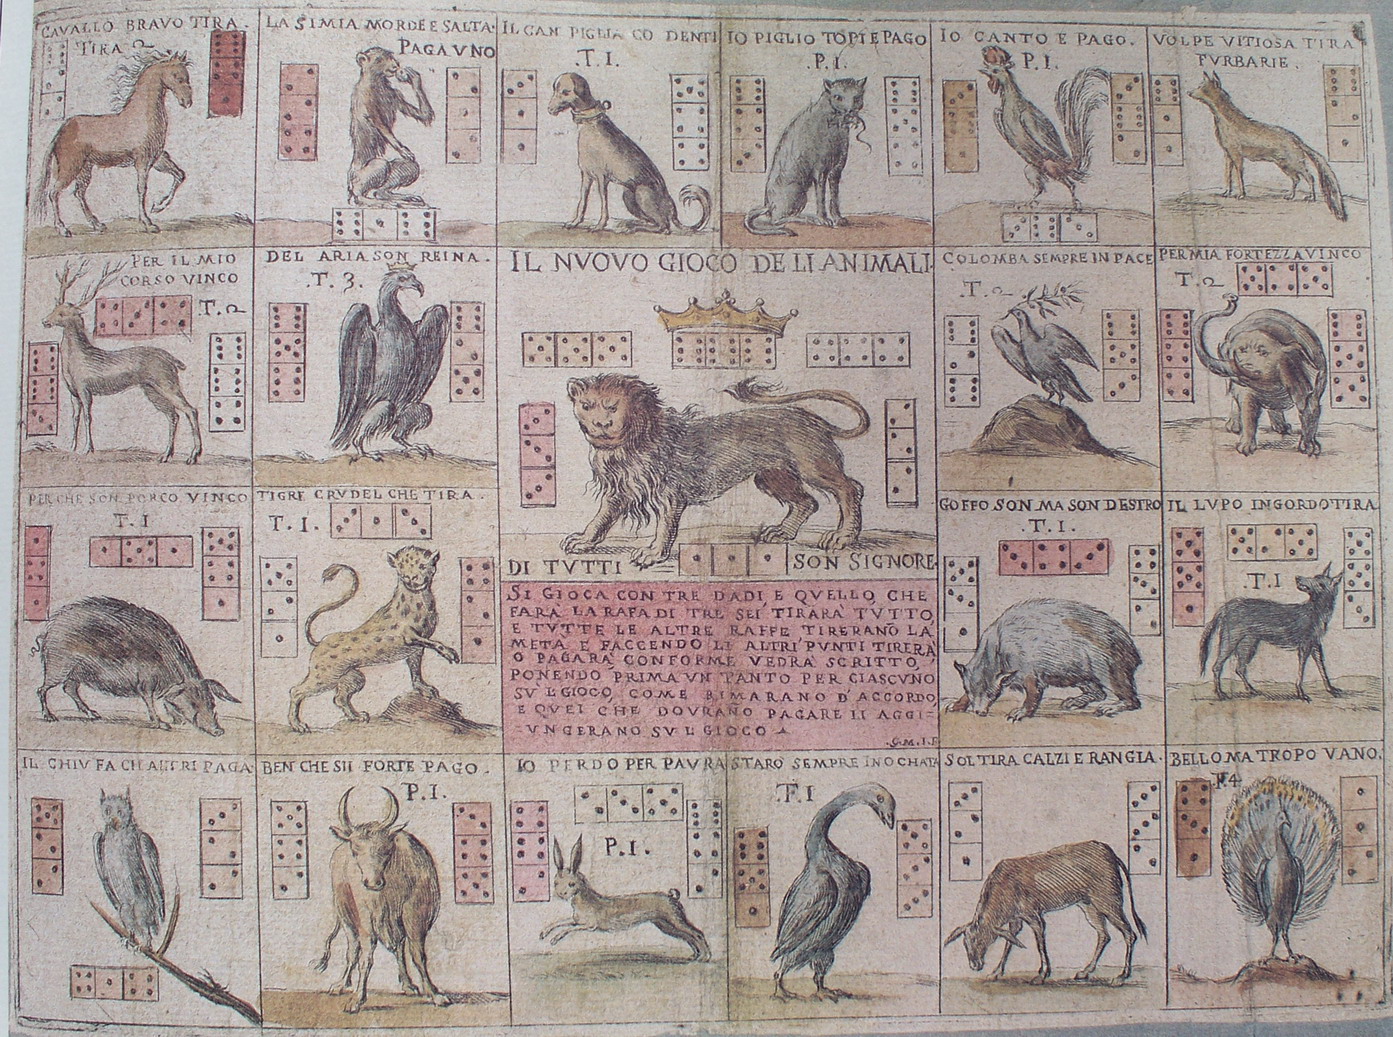 CAVALLO BRAVO TIRA.
TIRA 2
LA SIMIA MORDE E SALTA
PAGA VNO
IL CAN PIGLIA CO DENTI
.T.I.
IO PIGLIO TOPI E PAGO
.P.I.
IO CANTO E PAGO.
P.I.
VOLPE VITIOSA TIRA
FVRBARIE.
PER IL MIO
CORSO VINCO
T.2
DEL ARIA SON REINA.
.T.3.
IL NVOVO GIOCO DE LI ANIMALI
COLOMBA SEMPRE IN PACE
.T.2
PER MIA FORTEZZA VINCO
T.2
PERCHE SON PORCO VINCO
T.I
TIGRE CRVDEL CHE TIRA.
T.I.
DI TVTTI
SON SIGNORE
GOFFO SON MA SON DESTRO
.T.I.
IL LVPO INGORDO TIRA
T.I
SI GIOCA CON TRE DADI E QVELLO CHE
FARA LA RAFA DI TRE SEI TIRARA TVTTO,
E TVTTE LE ALTRE RAFFE TIRERANO LA
META E FACCENDO LI ALTRI PVNTI TIRERA
O PAGARA CONFORME VEDRA SCRITTO,
PONENDO PRIMA VN TANTO PER CIASCVNO
SV L GIOCO, COME RIMARANO D'ACCORDO,
E QVEI CHE DOVRANO PAGARE LI AGGI=
VNGERANO SV L GIOCO
.G.M.I.F.
IL CHIV FA CH ALTRI PAGA
BEN CHE SII FORTE PAGO.
P.I.
IO PERDO PER PAVRA
P.I.
STARO SEMPRE IN OCHATA
.T.I
SOL TIRA CALZI E RANGIA.
BELLO MA TROPO VANO.